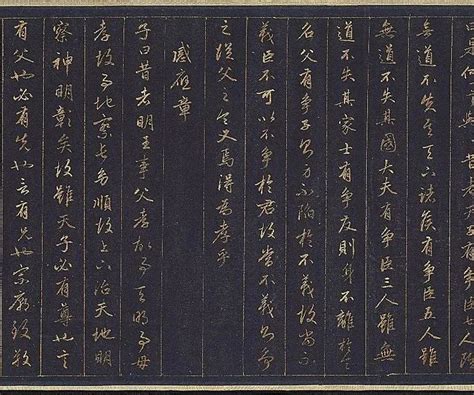 有争臣七人雖
無道不失天下諸侯有争臣五人雖
無道不失其國大夫有争臣三人雖無
道不失其家士有争友則身不離於令
名父有争子則身不陷於不義故當不
義臣不可以不争於君故當不義則争
之從父之令又焉得為孝乎
感應章
子曰昔者明王事父孝故事天明事母
孝故事地察長幼順故上下治天地明
察神明彰矣故雖天子必有尊也言
有父也必有先也言有兄也宗廟致敬